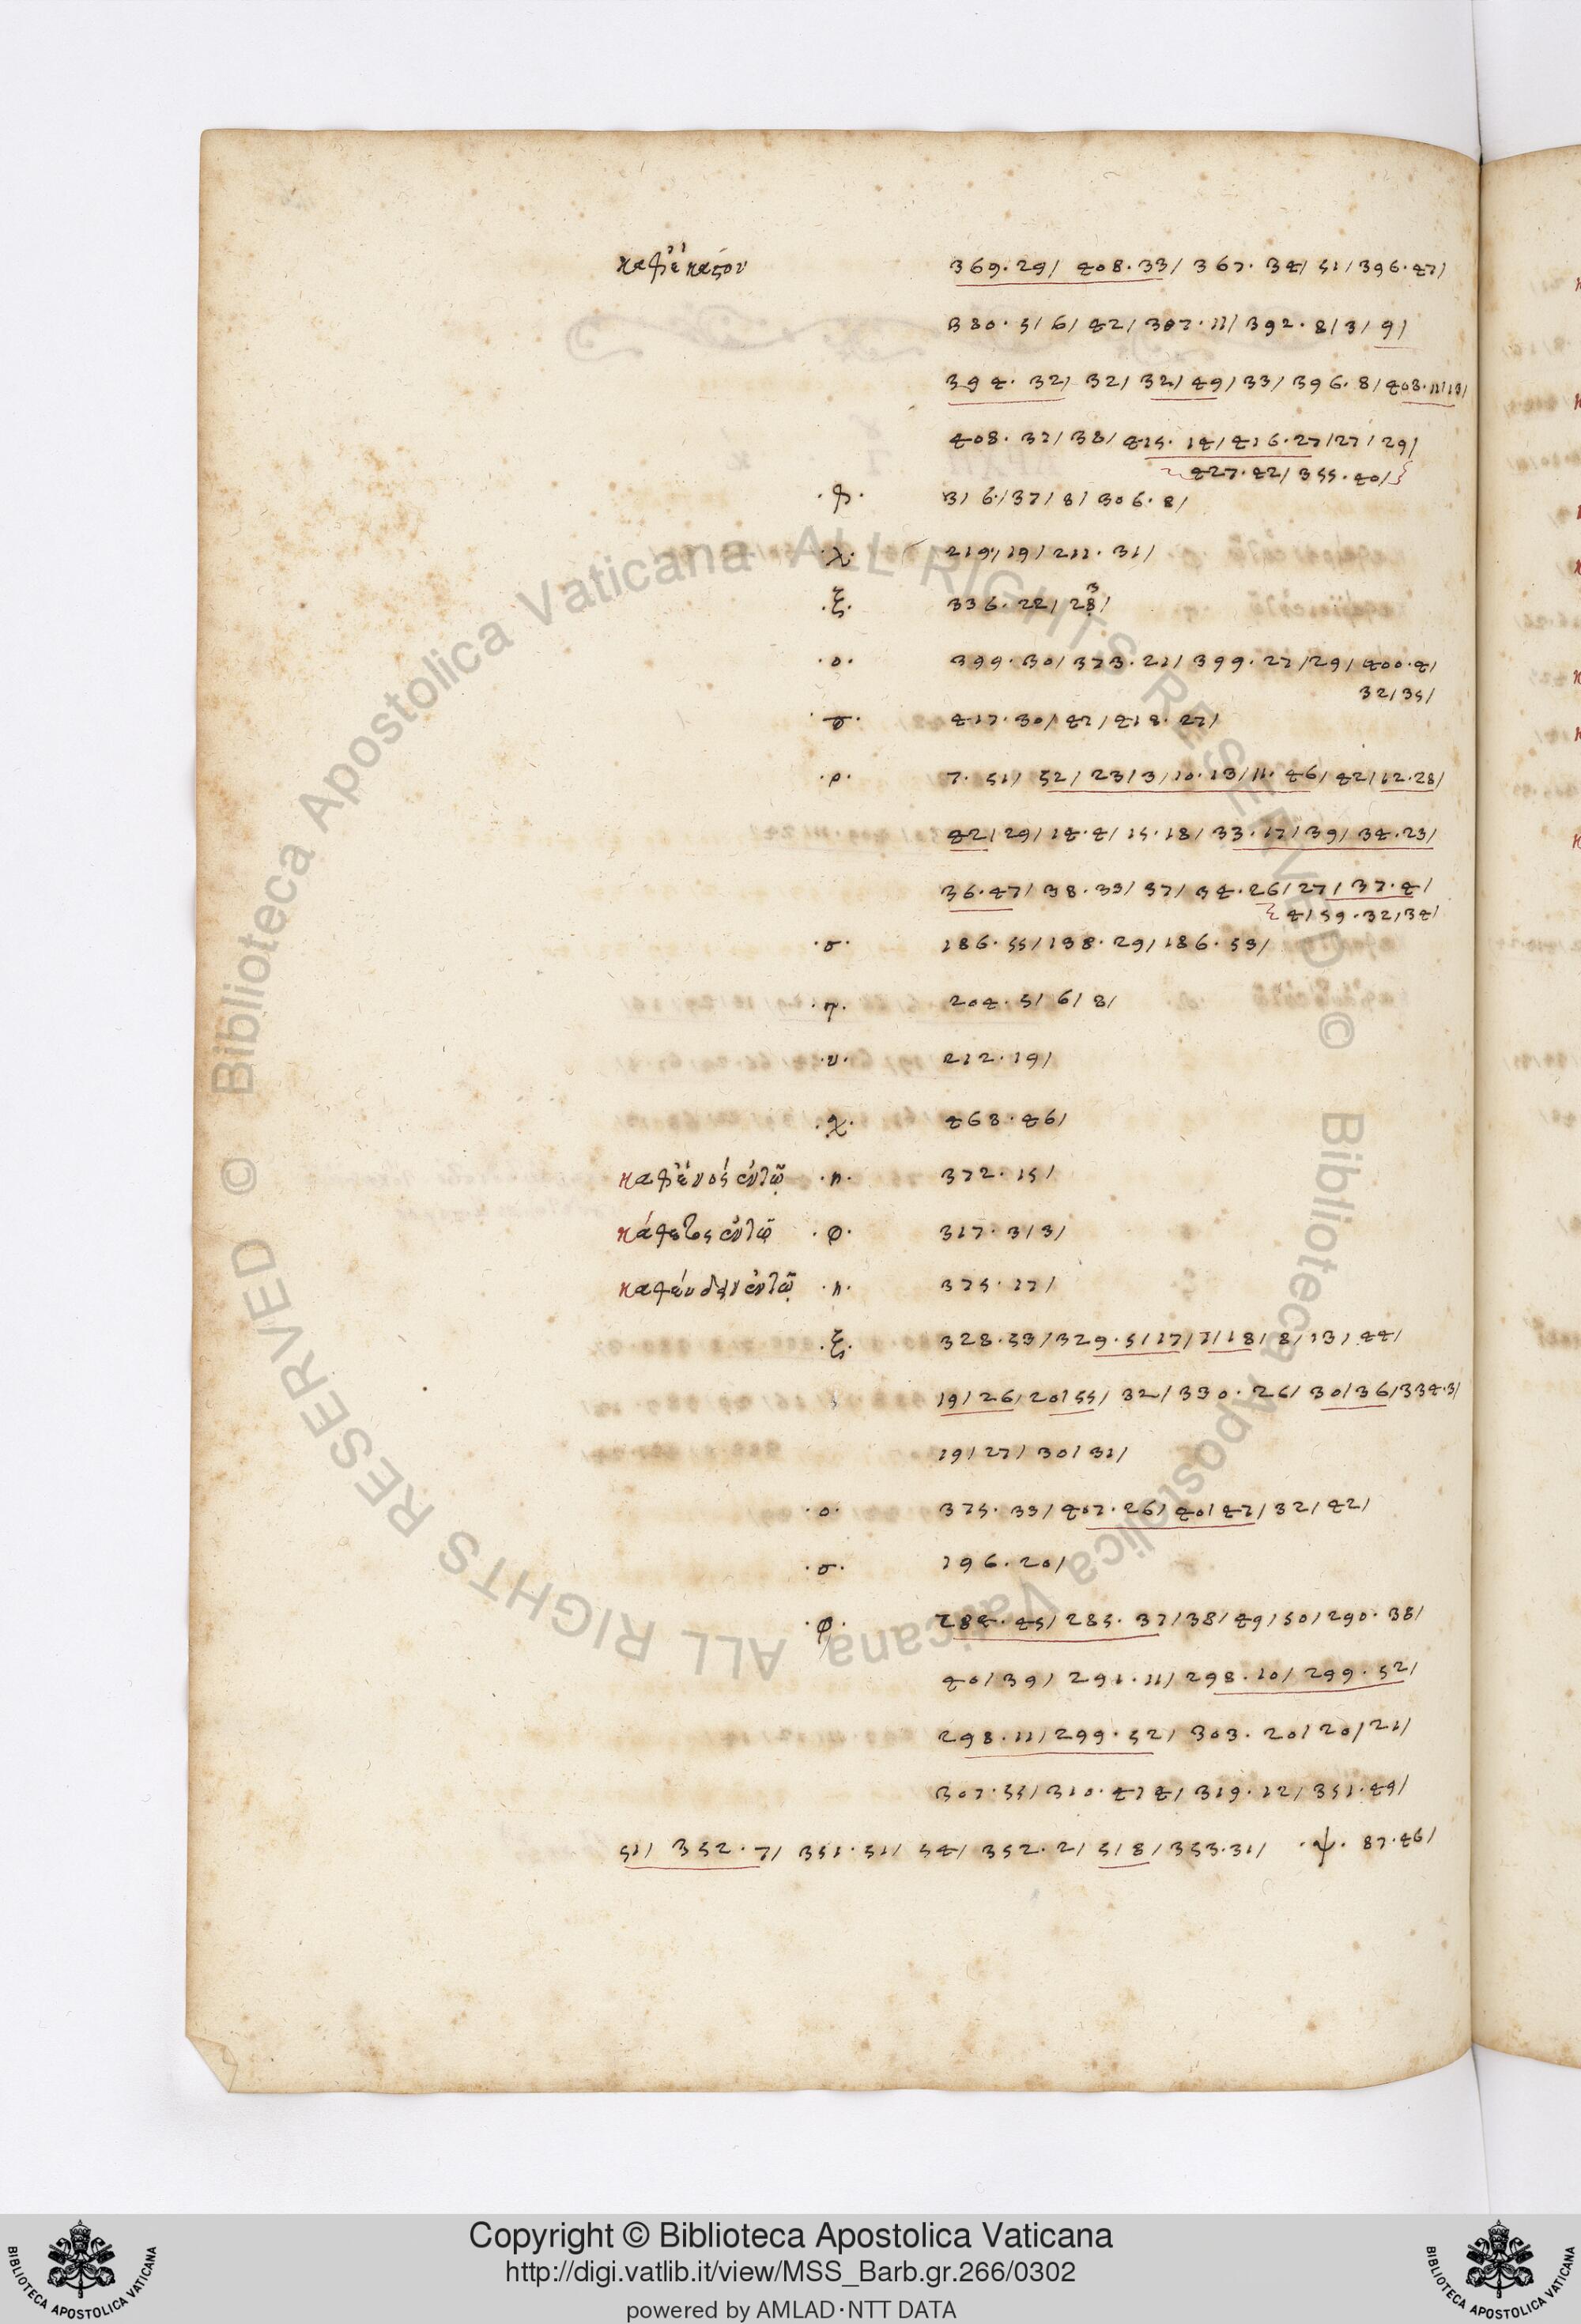 καθ' ἕκαστον 369·29/ 408·33/ 367·34/ 51/ 396·47/
380·5/6/42/387·11/392·8/3/9/
394·32/ 32/ 32/49/33/396·8/403·11/13/
408·37/38/415·14/416·27/27/29/
427·42/355·40/
·θ· 3/6/37/8/306·8/
·λ· 219/19/211·31/
·ξ· 336·22/28/
3
·ο· 399·30/373·21/399·27/29/400·4/
32/35/
417·30/47/418·27/
·ρ· 7·51/52/23/3/10·13/11·46/42/12·28/
42/29/14·4/15·18/33·17/39/34·23/
36·47/38·33/37/34·26/27/37·4/
4/59·32/34/
·σ· 186·55/138·29/186·53/
·τ· 204·5/6/8/
·υ· 212·19/
·χ· 468·46/
καθ' ἑνός ἐν τῷ ·κ· 372·15/
κάθετος ἐν τῷ ·φ· 317·3/3/
καθεύδειν ἐν τῷ ·κ· 375·17/
·ξ· 328·53/329·5/17/7/18/8/13/44/
19/26/20/55/32/330·26/30/36/334·3/
19/27/30/31/
·ο· 375·33/407·26/40/47/32/42/
·σ· 196·20/
·φ· 284·45/285·37/38/49/50/290·38/
40/39/291·11/298·10/299·52/
298·11/299·52/303·20/20/21/
307·55/310·47/4/319·12/351·49/
51/ 352·7/ 351·51/ 54/ 352·2/ 5/8/353·31/ ·ψ· 87·46/
© Biblioteca Apostolica Vaticana ALL RIGHTS RESERVED
© Biblioteca Apostolica Vaticana ALL RIGHTS RESERVED
BIBLIOTECA APOSTOLICA VATICANA
Copyright © Biblioteca Apostolica Vaticana
http://digi.vatlib.it/view/MSS_Barb.gr.266/0302
powered by AMLAD·NTT DATA
BIBLIOTECA APOSTOLICA VATICANA